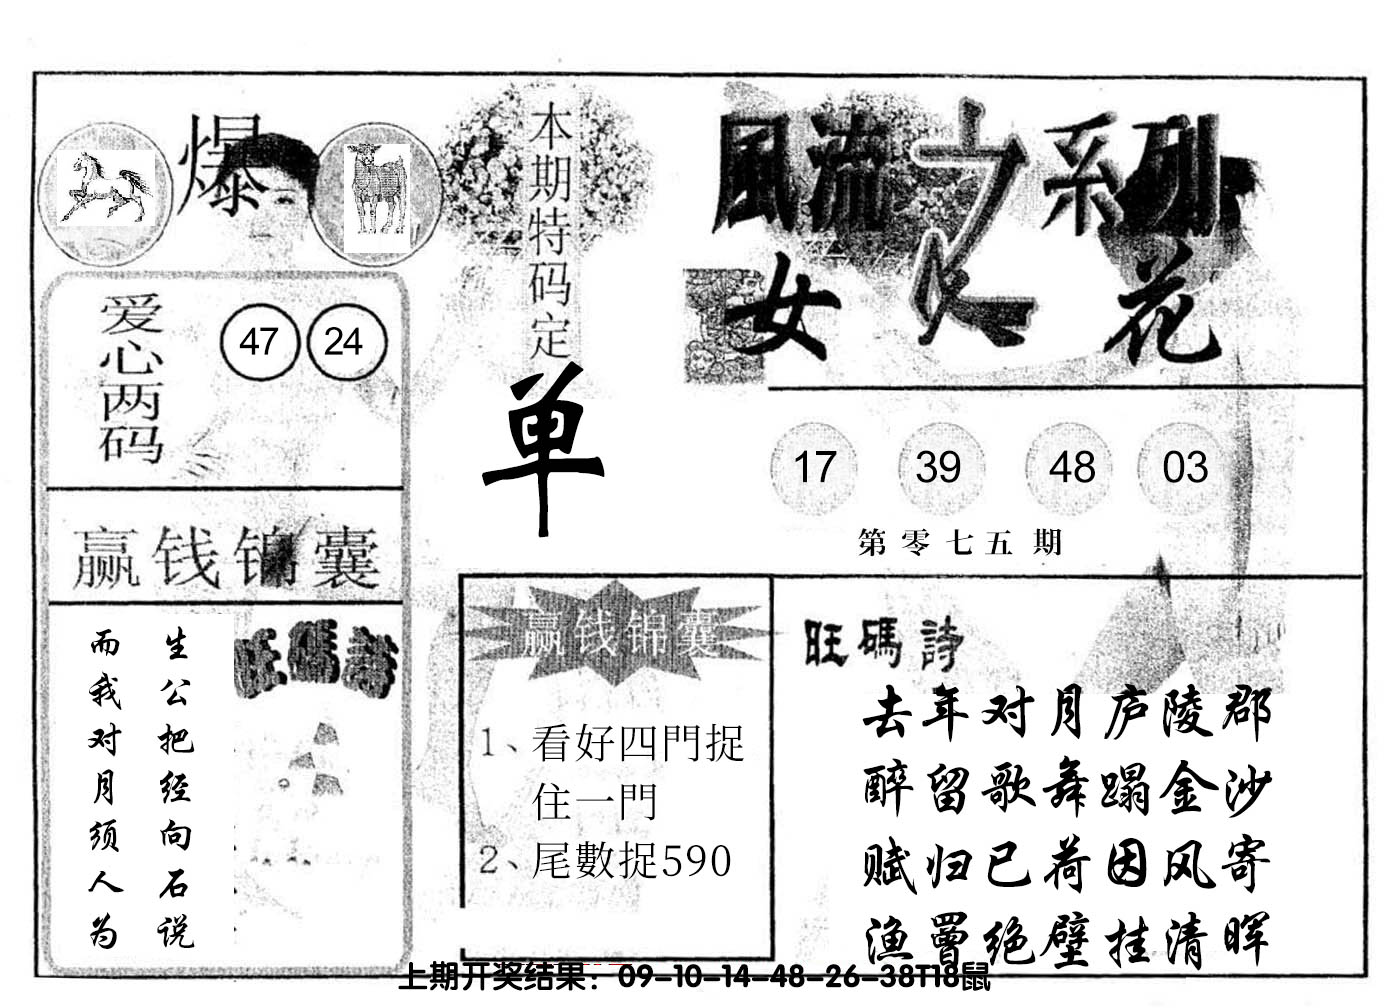 爆
本期特码定
单
風流之系列
女人花
爱心两码
47 24
17 39 48 03
第零七五期
赢钱锦囊
生公把经向石说
而我对月须人为
旺碼詩
赢钱锦囊
1、看好四門捉
住一門
2、尾數捉590
旺碼詩
去年对月庐陵郡
醉留歌舞蹋金沙
赋归已荷因风寄
渔罾绝壁挂清晖
上期开奖结果：09-10-14-48-26-38T18鼠